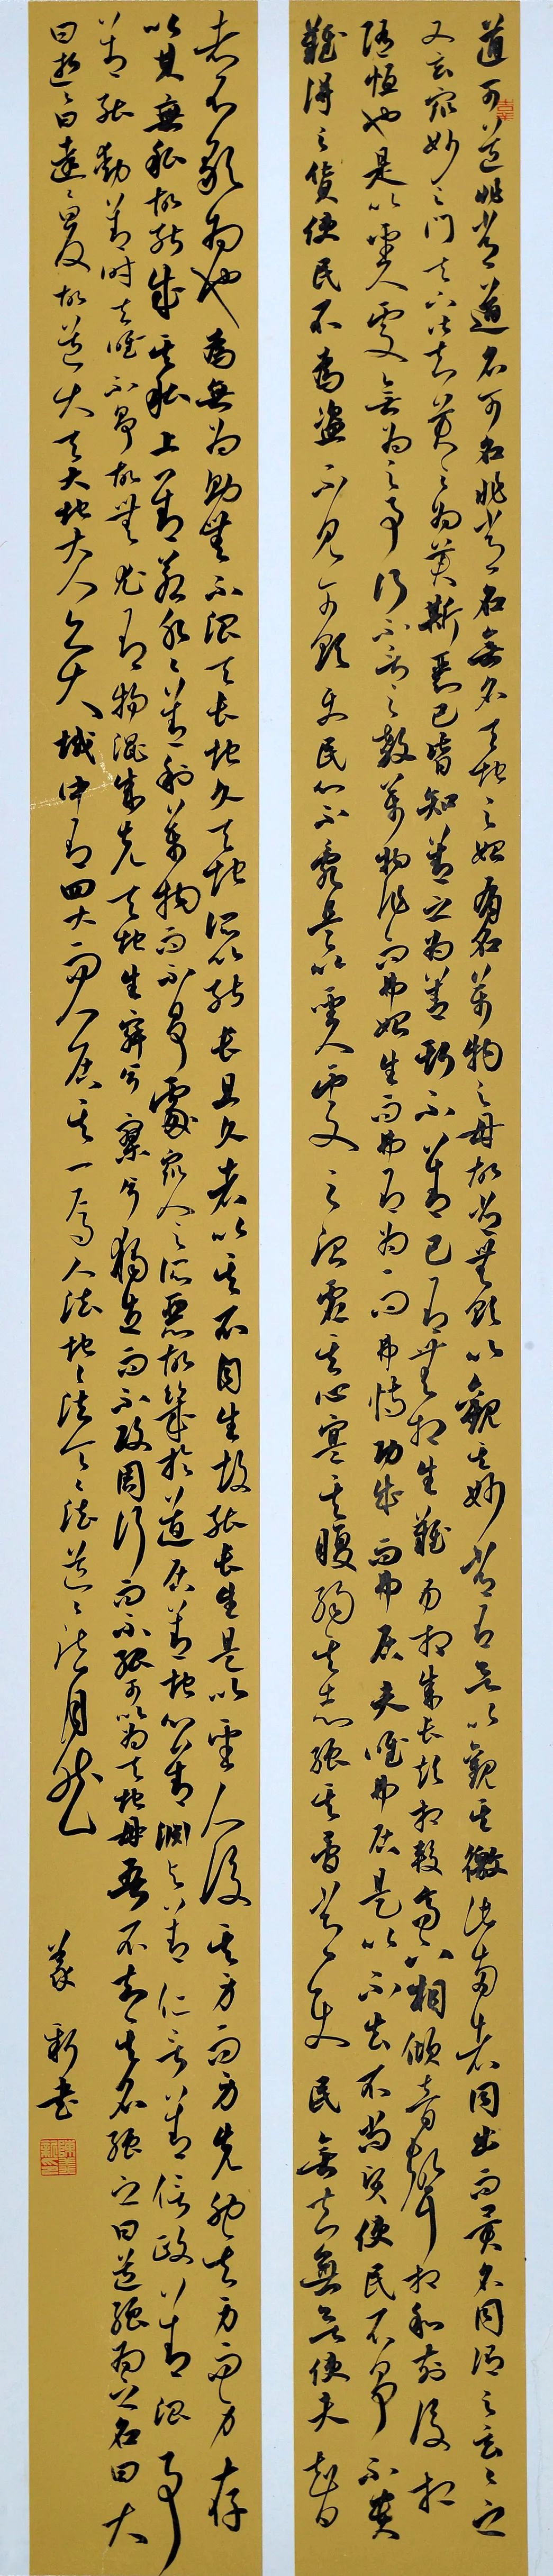 道可道非常道名可名非常名無名天地之始有名萬物之母故常無欲以觀其妙常有欲以觀其徼此兩者同出而異名同謂之玄々之
又玄眾妙之門天下皆知美之為美斯惡已皆知善之為善斯不善已有無相生難易相成長短相較高下相傾音聲相和前後相
隨恒也是以聖人處無為之事行不言之教萬物作而弗始生而弗有為而弗恃功成而弗居夫唯弗居是以不去不尚賢使民不爭不貴
難得之貨使民不為盜不見可欲使民心不亂是以聖人處之治虛其心實其腹弱其志強其骨常使民無知無欲使夫智
者不敢為也為無為則無不治天長地久天地所以能長且久者以其不自生故能長生是以聖人後其身而身先外其身而身存
以其無私故能成其私上善若水々善利萬物而不爭處眾人之所惡故幾於道居善地心善淵與善仁言善信政善治事
善能動善時夫唯不爭故無尤有物混成先天地生寂兮寥兮獨立而不改周行而不殆可以為天地母吾不知其名強之曰道強為之名曰大
曰逝々曰遠々曰反故道大天大地大人亦大域中有四大而人居其一焉人法地々法天々法道々法自然
義新書